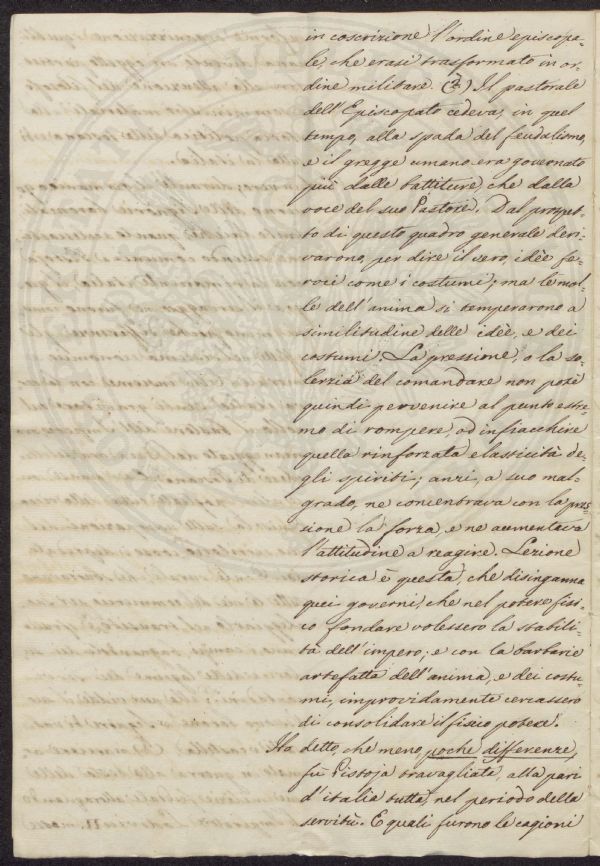 in coscrizione l'ordine episcopa-
le che erasi trasformato in or-
dine militare. (2) Il pastorale
dell'Episcopato cedeva, in quel
tempo, alla spada del feudalismo,
e il gregge umano era governato
più dalle battiture, che dalla
voce del suo Pastore. Dal prospet-
to di questo quadro generale deri-
varono, per dire il vero, idèe fe-
roci come i costumi; ma le mol-
le dell'anima si temperarono a
similitudine delle idèe, e dei
costumi. La pressione, o la so-
lerzia del comandare non potè
quindi pervenire al punto estre-
mo di rompere, od infiacchire
quella rinforzata elasticità de-
gli spiriti; anzi, a suo mal-
grado, ne concentrava con la pres-
sione la forza, e ne aumentava
l'attitudine a reagire. Lezione
storica è questa, che disinganna
quei governi, che nel potere fisi-
co fondare volessero la stabili-
tà dell'impero; e con la barbarie
artefatta dell'anima, e dei costu-
mi, improvidamente cercassero
di consolidare il fisico potere.
Ho detto, che meno poche differenze,
fù Pistoja travagliata, alla pari
d'italia tutta, nel periodo della
servitù. E quali furono le cagioni